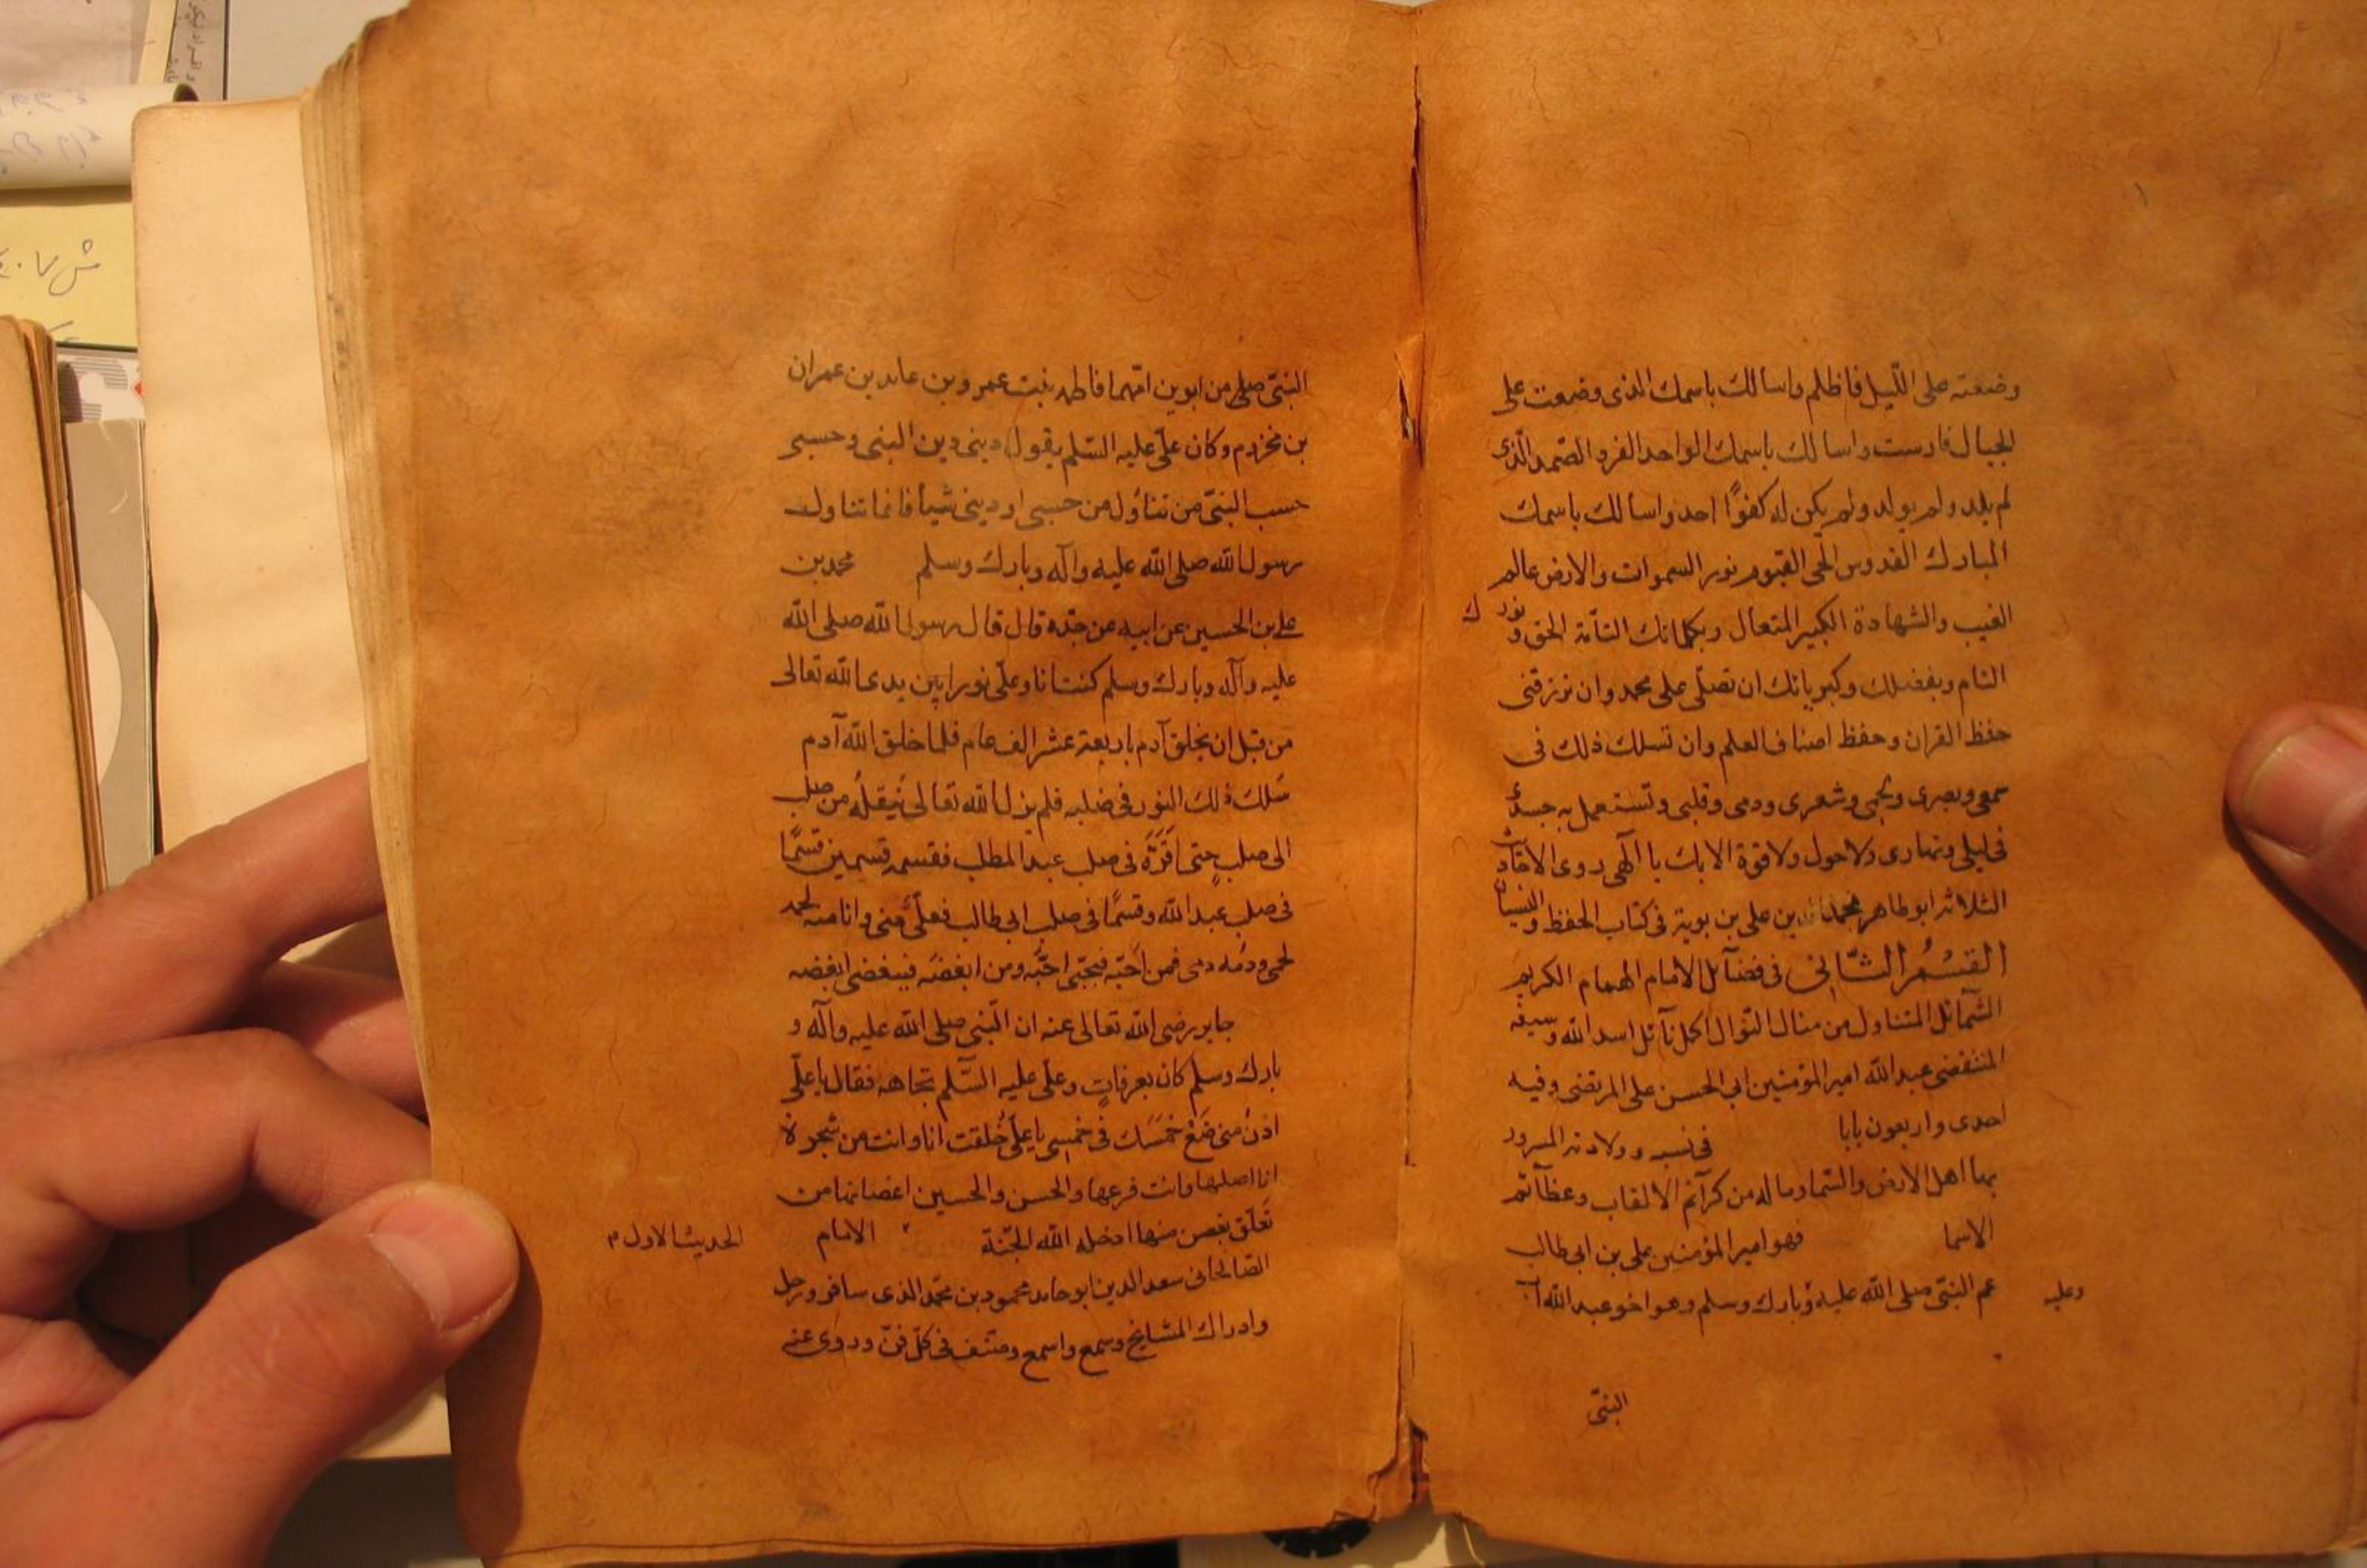 وضعته على الليل فاظلم واسالك باسمك الذى وضعت على
الجبال فارست واسالك باسمك الواحد الفرد الصمد الذى
لم يلد ولم يولد ولم يكن له كفوًا احد واسالك باسمك
المبارك القدوس الحى القيوم نور السموات والارض عالم
الغيب والشهادة الكبير المتعال وبكلماتك التامة الحق و نورك
التام وبفضلك وكبريائك ان تصلى على محمد وان ترزقنى
حفظ القران وحفظ اصناف العلم وان تسلك ذلك فى
سمعى وبصرى ولحمى وشعرى ودمى وقلبى وتستعمل به جسدى
فى ليلى ونهارى ولا حول ولا قوة الا بك يا الهى روى الاحاديث
الثلاثة ابو طاهر محمد بن على بن بوية فى كتاب الحفظ والنسيان
القسم الثانى فى فضآئل الامام الهمام الكريم
الشمآئل المتناول من منال النوال اكمل نآئل اسد الله وسيفه
المنتضى عبد الله امير المؤمنين ابى الحسن على المرتضى وفيه
احدى واربعون بابا فى نسبه وولادته المسرور
بها اهل الارض والسما وما له من كرآئم الالقاب وعظآئم
الاسما فهو امير المؤمنين على بن ابى طالب
عم النبى صلى الله عليه وبارك وسلم وهو اخو عبد الله اب
وعليه
النبىّ
النبىّ صلى من ابوين امهما فاطمه بنت عمرو بن عايد بن عمران
بن مخزوم وكان علىّ عليه السّلم يقول دينى دين النبى وحسبى
حسب النبىّ من تناول من حسبى او دينى شيأ فانما تناول
رسول الله صلى الله عليه وآله وبارك وسلم محمد بن
على بن الحسين عن ابيه عن جدّه قال قال رسول الله صلى الله
عليه وآله وبارك وسلم كنت انا وعلى نورا بين يدى الله تعالى
من قبل ان يخلق آدم باربعة عشر الف عام فلما خلق الله آدم
سَلك ذلك النور فى صلبه فلم يزل الله تعالى ينقله من صلب
الى صلب حتى اقرّه فى صلب عبد المطلب فقسمه قسمين قسمًا
فى صلب عبد الله وقسمًا فى صلب ابى طالب فعلىّ منى وانا منه لحمه
لحمى ودمه دمى فمن احبّه فبحبّى احبّه ومن ابغضه فببغضى ابغضه
جابر رضى الله تعالى عنه ان النّبى صلى الله عليه وآله و
بارك وسلم كان بعرفات وعلى عليه السّلم تجاهه فقال يا علىّ
ادن منى ضع خمسك فى خمسى يا علىّ خلقت انا وانت من شجرة
انا اصلها وانت فرعها والحسن والحسين اغصانها من
تعلّق بغصن منها ادخله الله الجنّة الامام
الحديث الاول م
الصالحانى سعد الدين ابو حامد محمود بن محمّد الذى سافر ورحل
وادرك المشايخ وسمع واسمع وصنف فى كلّ فنّ وروى عنه